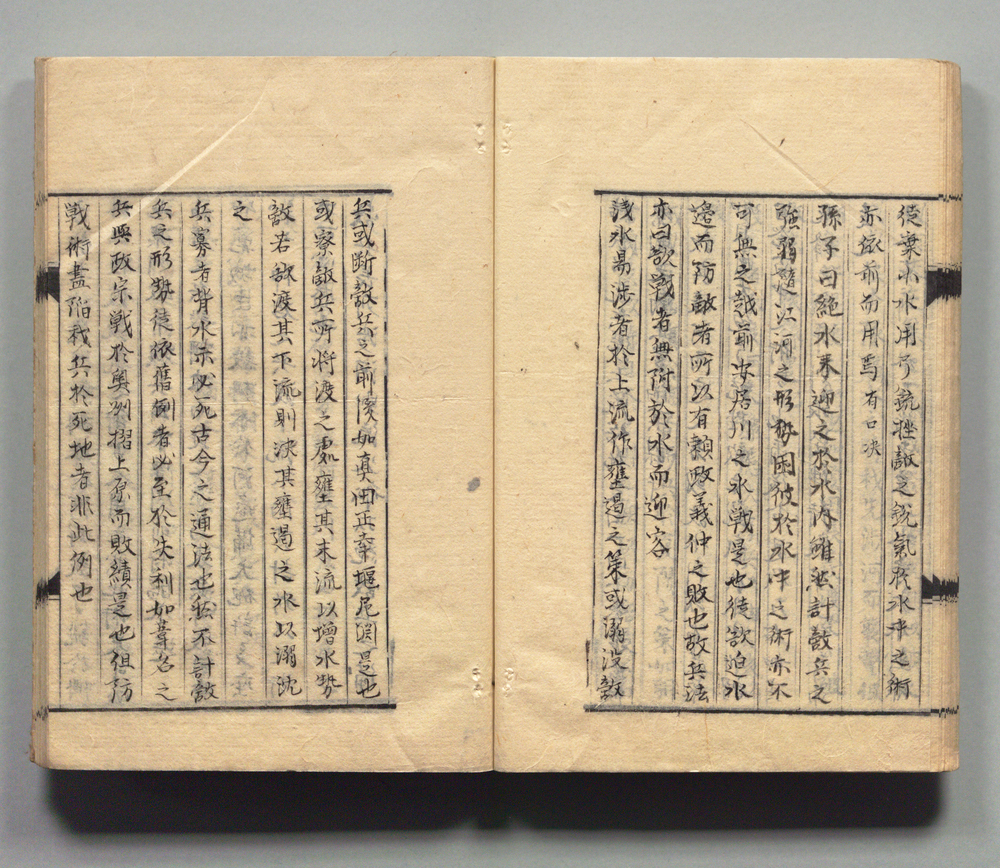 徒棄小水用弓銃挫敵之銳氣於水中之術
亦依前而用焉有口决
孫子曰絶水来迎之於水内雖然計敵兵之
強弱隨江河之形勢困彼於水中之術亦不
可無之越前安居川之水戦是也徒欲迫水
邊而防敵者所以有頼政義仲之敗也故兵法
亦曰欲戦者無附於水而迎客
浅水易渉者於上流作壅遏之策或溺没敵
兵或断敵兵之前後如真田正幸堰尼淵是也
或察敵兵所将渡之處壅其末流以增水勢
敵若欲渡其下流則决其壅遏之水以溺沈
之
兵寡者背水示必死古今之通法也然不計敵
兵之形勢徒依舊例者必至於失利如葦名之
兵與政宗戦於奥州摺上原而敗績是也但防
戦術盡陥我兵於死地者非此例也